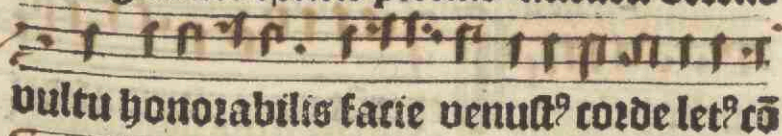 vultu honorabilis facie venustꝰ corde letꝰ cō